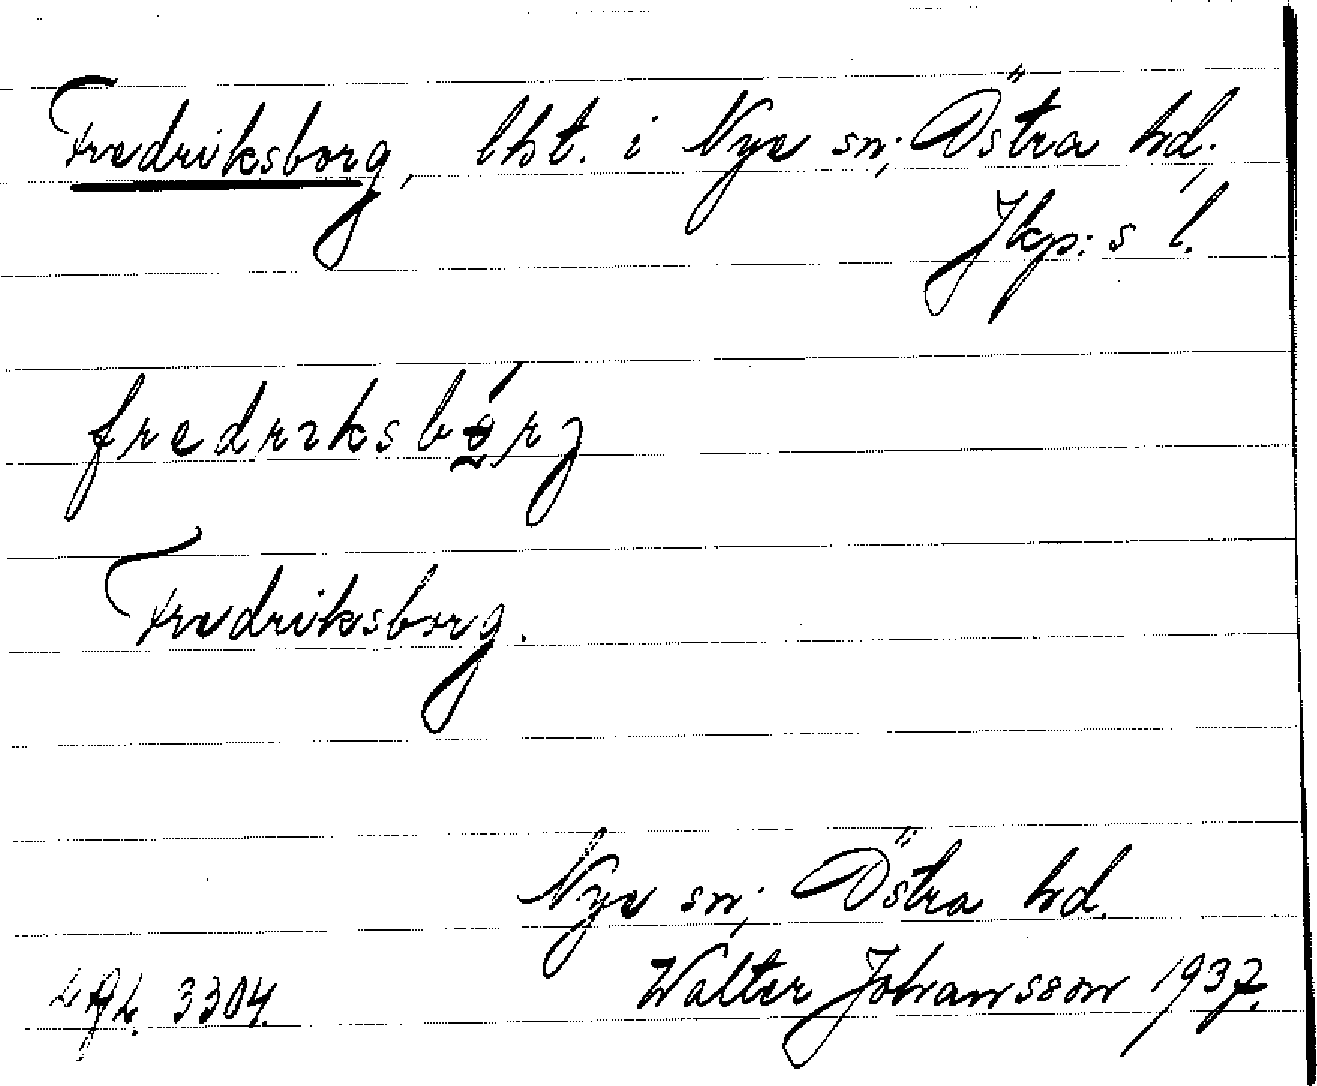 Fredriksborg, lht. i Nye sn; Östra hd.
Jkp:s l.
Fredriksborg.
Nye sn; Östra hd.
3304. Walter Johansson 1937.